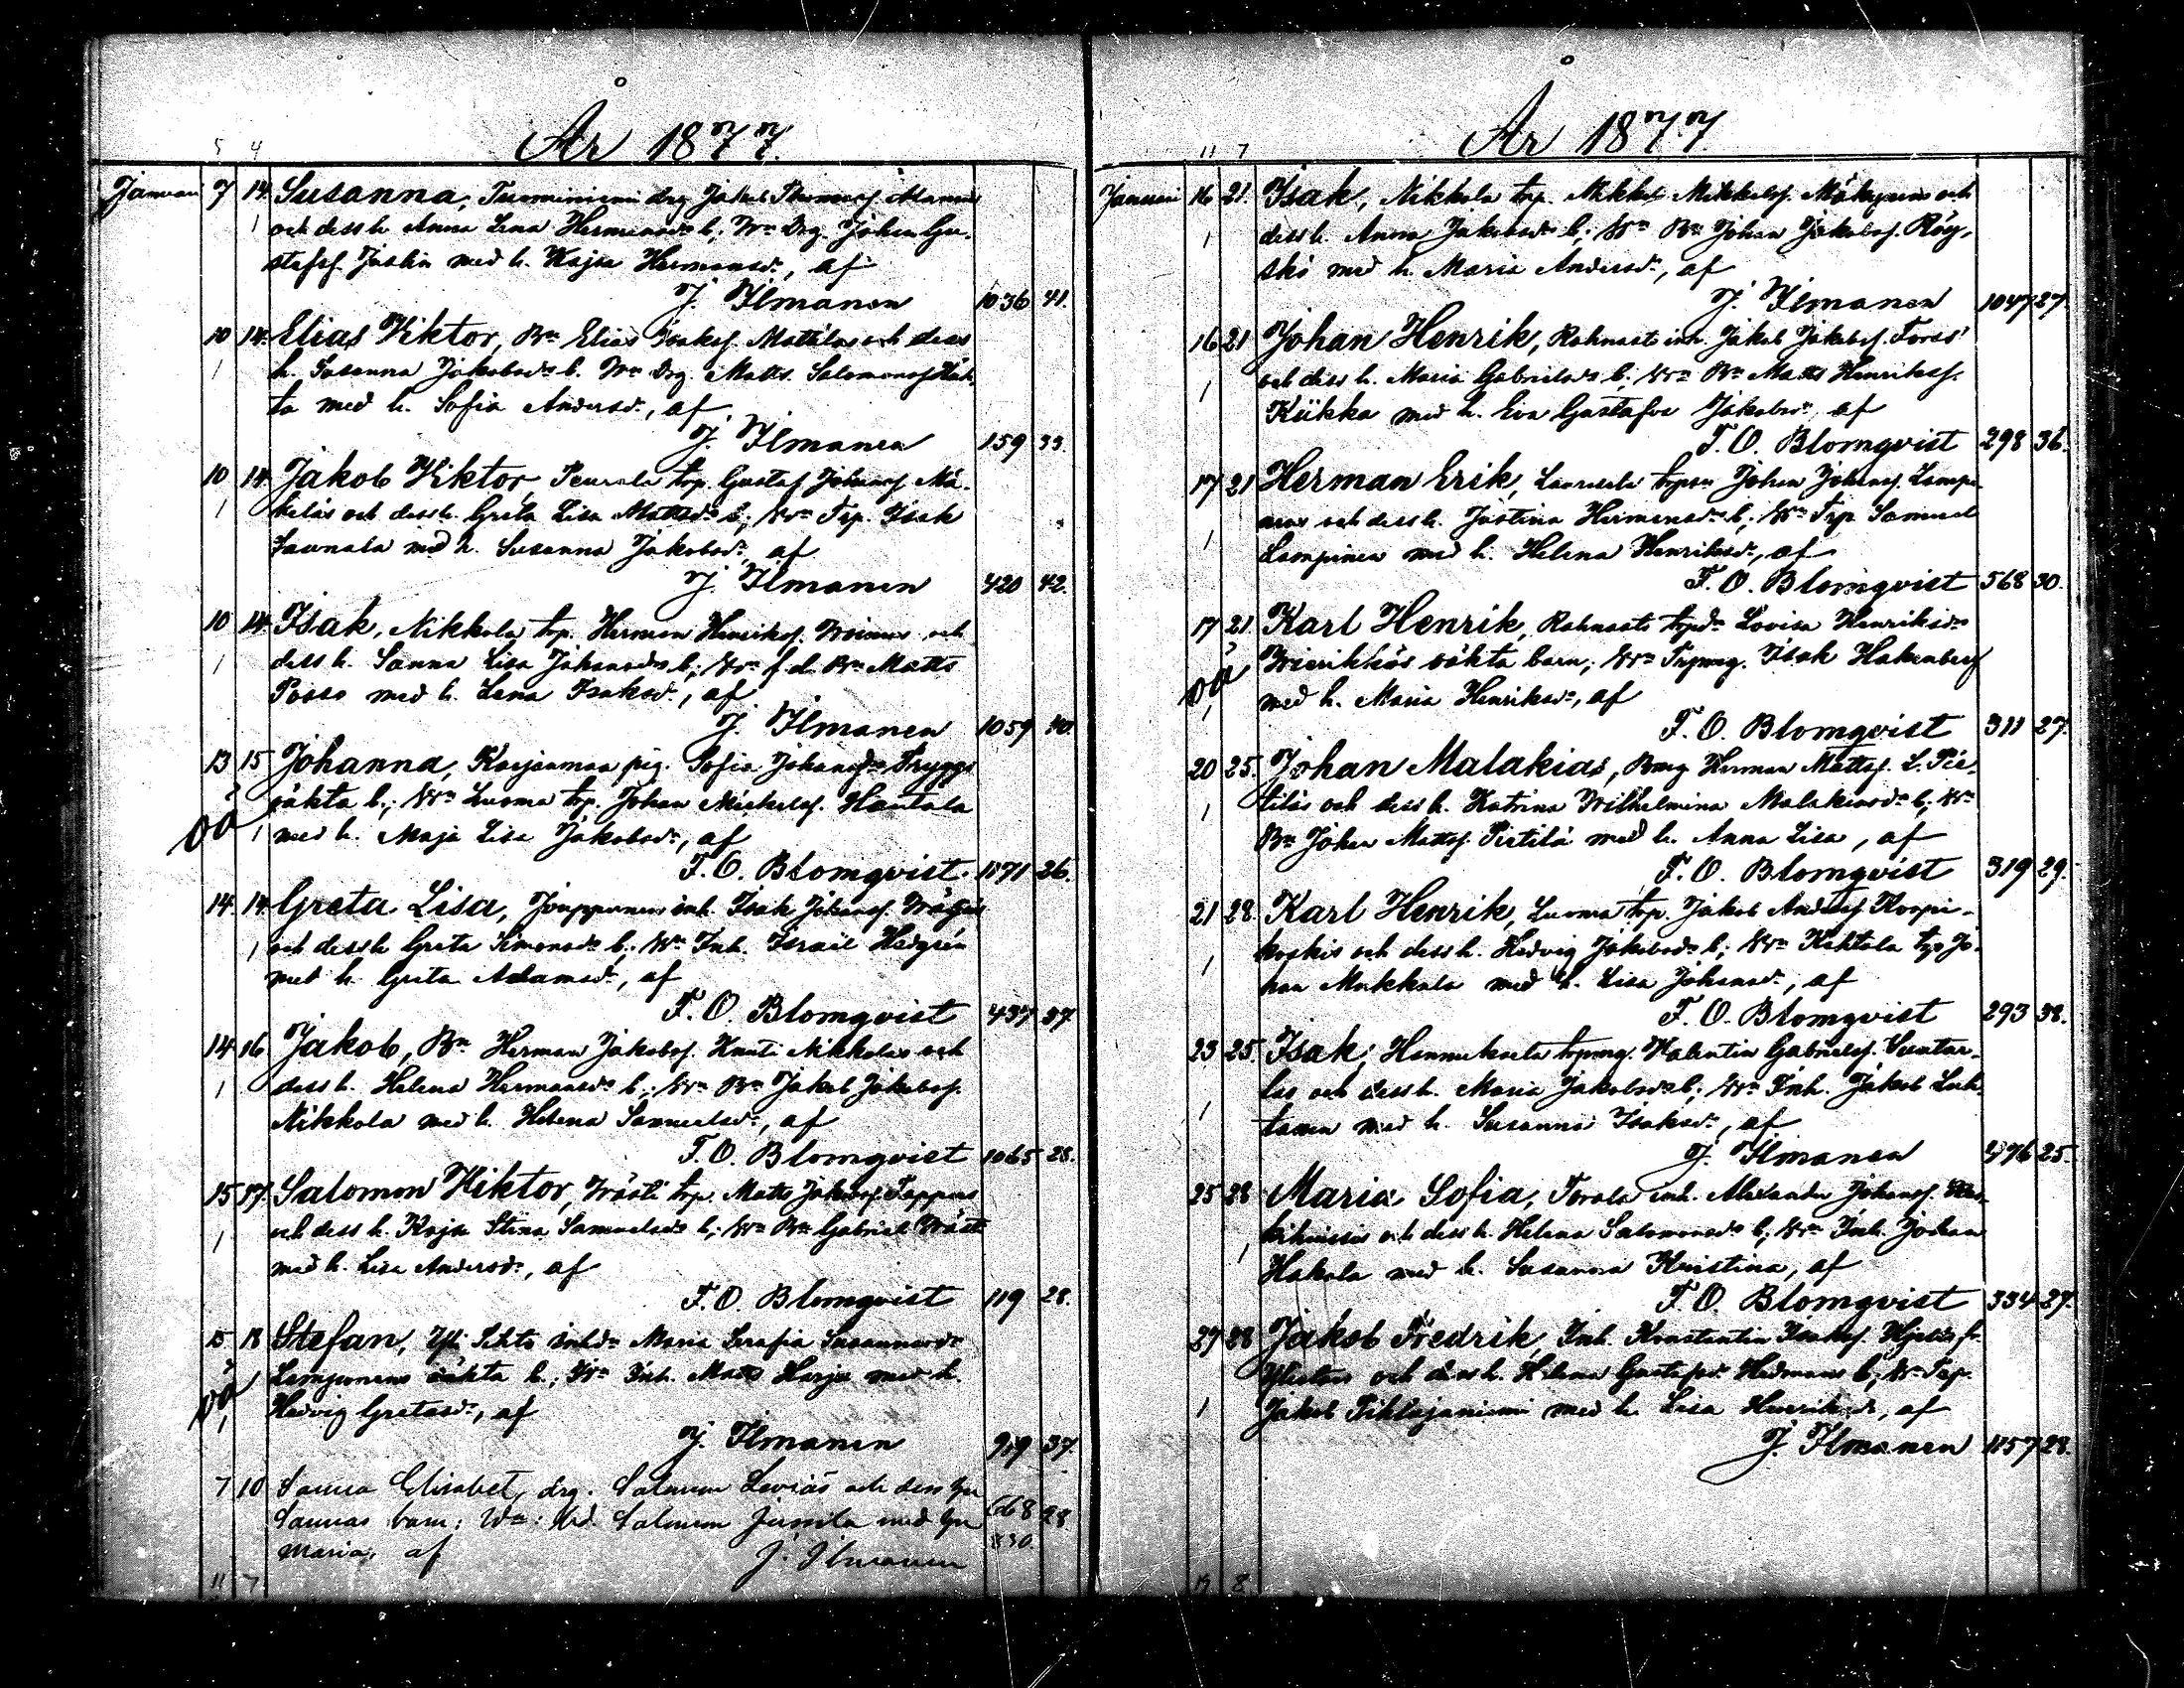 År 1877.
5 4
Januari 7 14. Susanna, Tuominiemi drg Jakob
1 och dess h. Anna Lena Hermansdr b; Wn Drg. Johan Gu-
stafsf. Joslin med h. Kajsa Hermansdr, af
J. Ilmanen 1036 41.
10 14. Elias Viktor, Bn Elias Isaksf. Mattilas och dess
1 h. Susanna Jakobsdr b. Wn Drg. Matts Salomonsf
ta med h. Sofia Andersdr, af
J. Ilmanen 159 33.
10 14. Jakob Viktor Peurala trp. Gustaf Johansf Mä-
1 keläs och dess h. Greta Lisa Mattsdr b; Wn Trp. Isak
Saunala med h. Susanna Jakobsdr, af
J. Ilmanen 420 42.
10 14. Isak, Nikkola trp. Herman Henriksf. och
1 dess h. Sanna Lisa Johansdr b; Wn f.d. Bn Matts
Posso med h. Lena Isaksdr, af
J. Ilmanen 1059 40.
13 15 Johanna, Karjanmaa pig. Sofia Johansdr Tryggs
oä oäkta b; Wn Luoma trp. Johan Mickelsf. Hautala
1 med h. Maja Lisa Jakobsdr, af
F. O. Blomqvist. 1071 26.
14. 14. Greta Lisa, Jouppinens inh. Isak Johansf.
1 och dess h. Greta Simonsdr b; Wn Inh. Israel Hedgrén
med h. Greta Adamsdr, af
F. O. Blomqvist 437 37
14 16 Jakob, Bn Herman Jakobsf. Knuti Nikkolas och
1 dess h. Helena Hermansdr b; Wn Bn Jakob Jakobsf.
Nikkola med h. Helena Samuelsdr, af
F. O. Blomqvist 1065 28.
15 17. Salomon Viktor, Wästi trp. Matts Jakobsf. Tappus
1 och dess h. Kajsa Stina Samuelsdr b; Wn Bn Gabriel Wästi
med h. Lisa Andersdr, af
F. O. Blomqvist 119 28.
15 18 Stefan, Yli Sikto inhdr Maria Serafia Susannasdr
oä Lampinens oäkta b.; Wn Inh. Matts Harju med h.
1 Hedvig Gretasdr, af
J. Ilmanen 919 37.
7 10 Sanna Elisabet, drg. Salomon Leviäs och dess hu
Sannas barn; Wn: Salomon Jussila med hu 668 28
Maria, af J. Ilmanen 830.
11 7
År 1877
11 7
Januari 16 21. Isak, Nikkola trp. Nikkel Mikkelsf. och
1 dess h. Anna Jakobsdr b; Wn Bn Johan Jakobsf. Röy-
skö med h. Maria Andersdr, af
J. Ilmanen 1047 27.
16 21 Johan Henrik, Rahnasto inh. Jakob Jakobsf. Forss'
1 och dess h. Maria Gabrielsdr b; Wn Bn Matts Henriksf.
Kükka med h. Eva Gustafva Jakobsdr, af
F. O. Blomqvist 298 36.
17 21 Herman Erik, Laurila Johan Johansf. Lampi-
nens och dess h. Justina Hermansdr b; Wn Trp. Samuel
1 Lampinen med h. Helena Henriksdr, af
F. O. Blomqvist 568 30.
17 21. Karl Henrik, Rahnasto trpdr Lovisa Henriksdr
oä oäkta barn; Wn Trpmg. Isak Hakenberg
1 med h. Maria Henriksdr, af
F. O. Blomqvist 311 27.
20 25. Johan Malakias, Bmg Herman Mattsf. L. Pie-
1 tiläs och dess h. Katrina Wilhelmina Malakiasdr b; Wn
Bn Johan Mattsf. Pietilä med h. Anna Lisa, af
F. O. Blomqvist 319 29.
21 28. Karl Henrik, Luoma trp. Jakob Andersf Koopi-
1 koskis och dess h. Hedvig Jakobsdr b; Wn Kahtala trp Jo-
han Mukkala med h. Lisa Johansdr, af
F. O. Blomqvist 293 38.
23 25. Isak, Hannuksela trpmg. Valentin Gabrielsf.
1 las och dess h. Maria Jakobsdr b; Wn Inh. Jakob Luh-
tanen med h. Susanna Isaksdr, af
J. Ilmanen 496 25.
25 28 Maria Sofia, Torola inh. Alexander Johansf.
1 och dess h. Helena Salomonsdr b; Wn Inh. Johan
Hakala med h. Susanna Kristina, af
F. O. Blomqvist 334 27.
27 28 Jakob Fredrik, Inh. Konstantin Isaksf. fr.
och dess h. Helena Gustafsdr Hedmans b; Wn Trp.
1 Jakob Pihlajaniemi med h. Lisa Henriksdr, af
J. Ilmanen 1157 28.
8